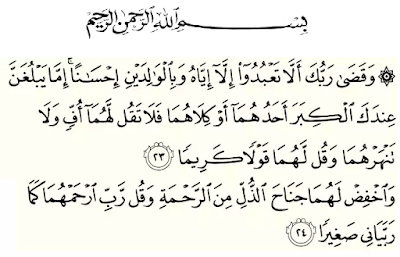 بِسْمِ اللَّهِ الرَّحْمَنِ الرَّحِيمِ
۞ وَقَضَىٰ رَبُّكَ أَلَّا تَعْبُدُوٓا۟ إِلَّآ إِيَّاهُ وَبِٱلْوَٰلِدَيْنِ إِحْسَٰنًا ۚ إِمَّا يَبْلُغَنَّ
عِندَكَ ٱلْكِبَرَ أَحَدُهُمَآ أَوْ كِلَاهُمَا فَلَا تَقُل لَّهُمَآ أُفٍّ وَلَا
نَنْهَرْهُمَا وَقُل لَّهُمَا قَوْلًا كَرِيمًا ٢٣
وَٱخْفِضْ لَهُمَا جَنَاحَ ٱلذُّلِّ مِنَ ٱلرَّحْمَةِ وَقُل رَّبِّ ٱرْحَمْهُمَا كَمَا
رَبَّيَانِى صَغِيرًا ٢٤